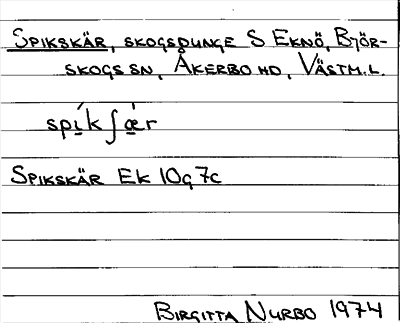 SPIKSKÄR, SKOGSDUNGE S EKNÖ, BJÖR-
SKOGS SN, ÅKERBO HD, VÄSTM.L.
spí̱kʃǽ̱r
SPIKSKÄR EK 10g 7c
BIRGITTA NURBO 1974